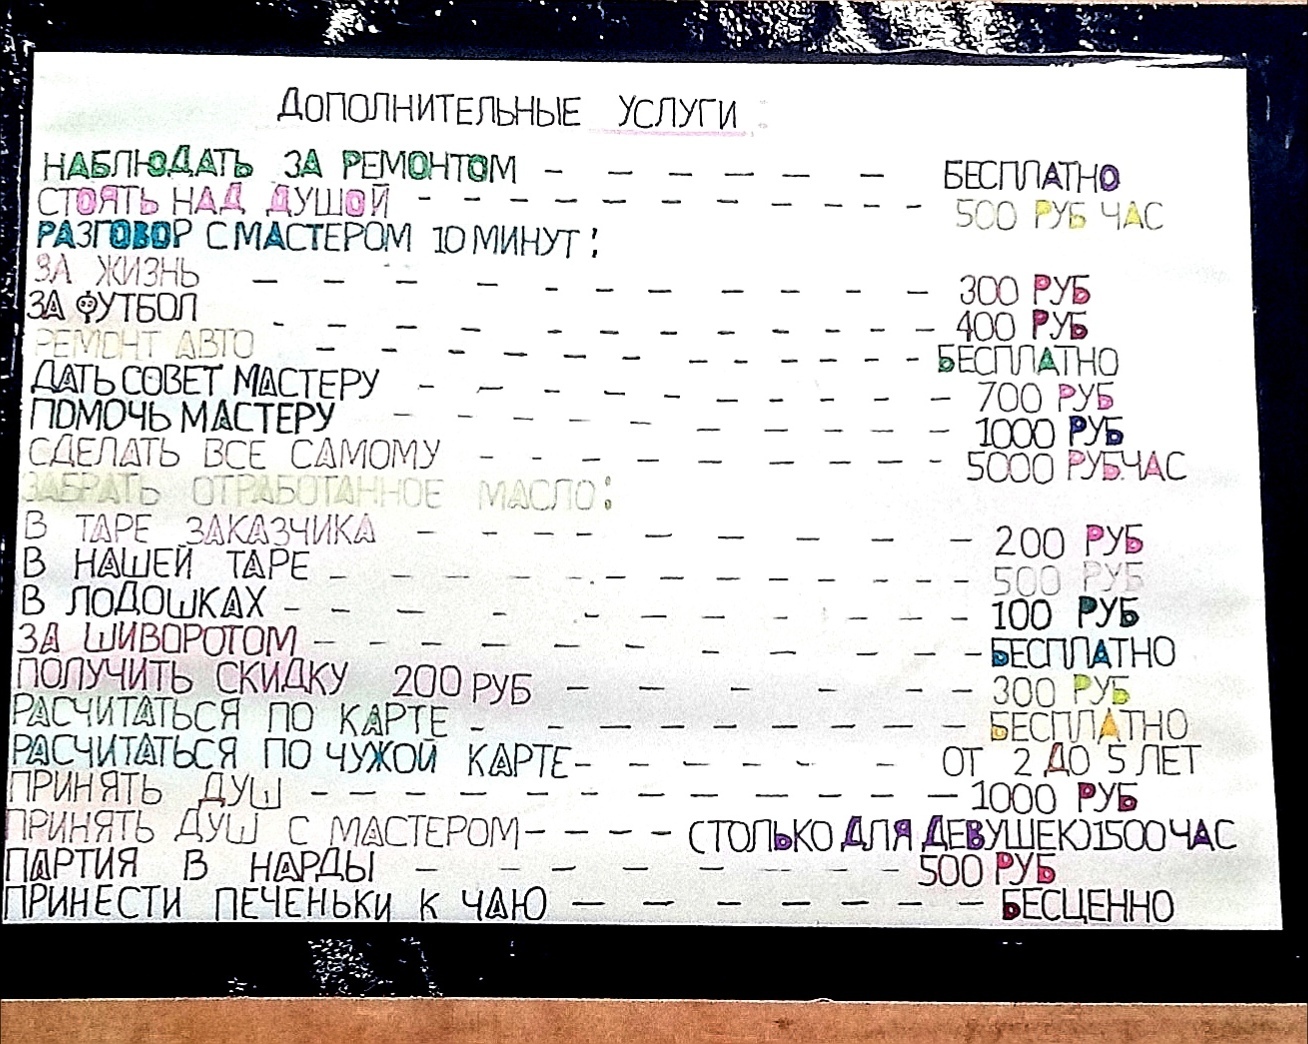 ДОПОЛНИТЕЛЬНЫЕ УСЛУГИ
НАБЛЮДАТЬ ЗА РЕМОНТОМ - - - - - - БЕСПЛАТНО
СТОЯТЬ НАД ДУШОЙ - - - - - - - - - - - - - 500 РУБ ЧАС
РАЗГОВОР С МАСТЕРОМ 10 МИНУТ:
ЗА ЖИЗНЬ - - - - - - - - - - - 300 РУБ
ЗА ФУТБОЛ - - - - - - - - - - - - 400 РУБ
РЕМОНТ АВТО - - - - - - - - - - - - БЕСПЛАТНО
ДАТЬ СОВЕТ МАСТЕРУ - - - - - - - - - - 700 РУБ
ПОМОЧЬ МАСТЕРУ - - - - - - - - - - - 1000 РУБ
СДЕЛАТЬ ВСЕ САМОМУ - - - - - - - - - 5000 РУБ.ЧАС
ЗАБРАТЬ ОТРАБОТАННОЕ МАСЛО:
В ТАРЕ ЗАКАЗЧИКА - - - - - - - - - 200 РУБ
В НАШЕЙ ТАРЕ - - - - - - - - - - - - 500 РУБ
В ЛОДОШКАХ - - - - - - - - - - - - 100 РУБ
ЗА ШИВОРОТОМ - - - - - - - - - - - - БЕСПЛАТНО
ПОЛУЧИТЬ СКИДКУ 200 РУБ - - - - - - - 300 РУБ
РАСЧИТАТЬСЯ ПО КАРТЕ - - - - - - - - - БЕСПЛАТНО
РАСЧИТАТЬСЯ ПО ЧУЖОЙ КАРТЕ - - - - - - - ОТ 2 ДО 5 ЛЕТ
ПРИНЯТЬ ДУШ - - - - - - - - - - - - - - 1000 РУБ
ПРИНЯТЬ ДУШ С МАСТЕРОМ - - - - - СТОЛЬКО ДЛЯ ДЕВУШЕК) 1500 ЧАС
ПАРТИЯ В НАРДЫ - - - - - - - - - - - 500 РУБ
ПРИНЕСТИ ПЕЧЕНЬКИ К ЧАЮ - - - - - - - - БЕСЦЕННО